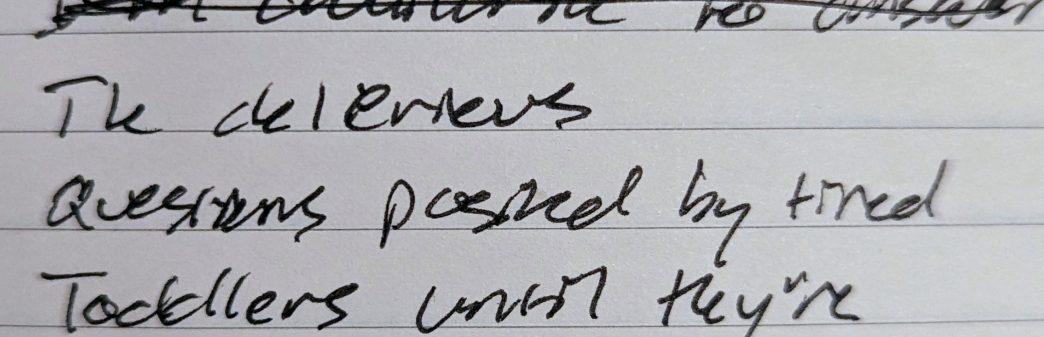 to answer
The delerieus
Questions posited by tired
Toddlers until they're